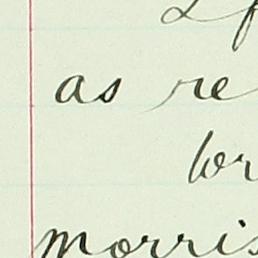 as re
br
morris